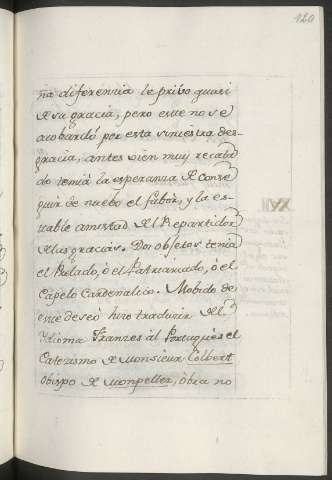 120
ña diferencia le pribo quasi
de su gracia, pero este no se
acobardó por esta siniestra des-
gracia, antes vien muy recabd
do tenia la esperanza de conse
guir de nuebo el fabor, y la es-
table amistad del Repartidor
de las gracias. Dos objetos tenia
el Prelado, ò el Patriarcado, ò el
Capelo Cardenalicio. Mobido de
este deseó hizo traducir del
Ydioma Franzes àl Portuguès el
Catezismo de Monsieur Colbert
Obispo de Monpeller, òbra no
XVII